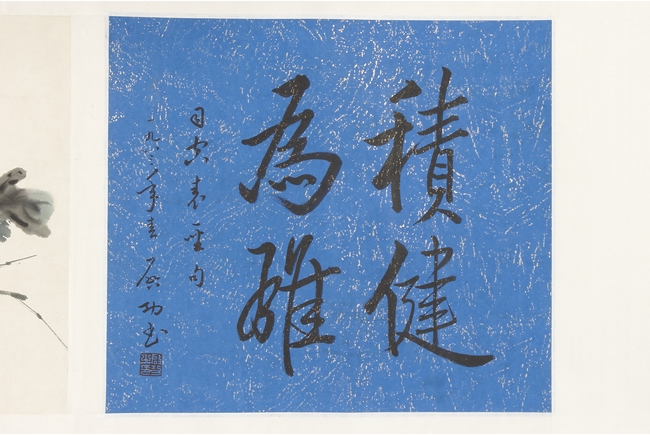 積健
為雄
司空表聖句
一九六三年春 啟功書